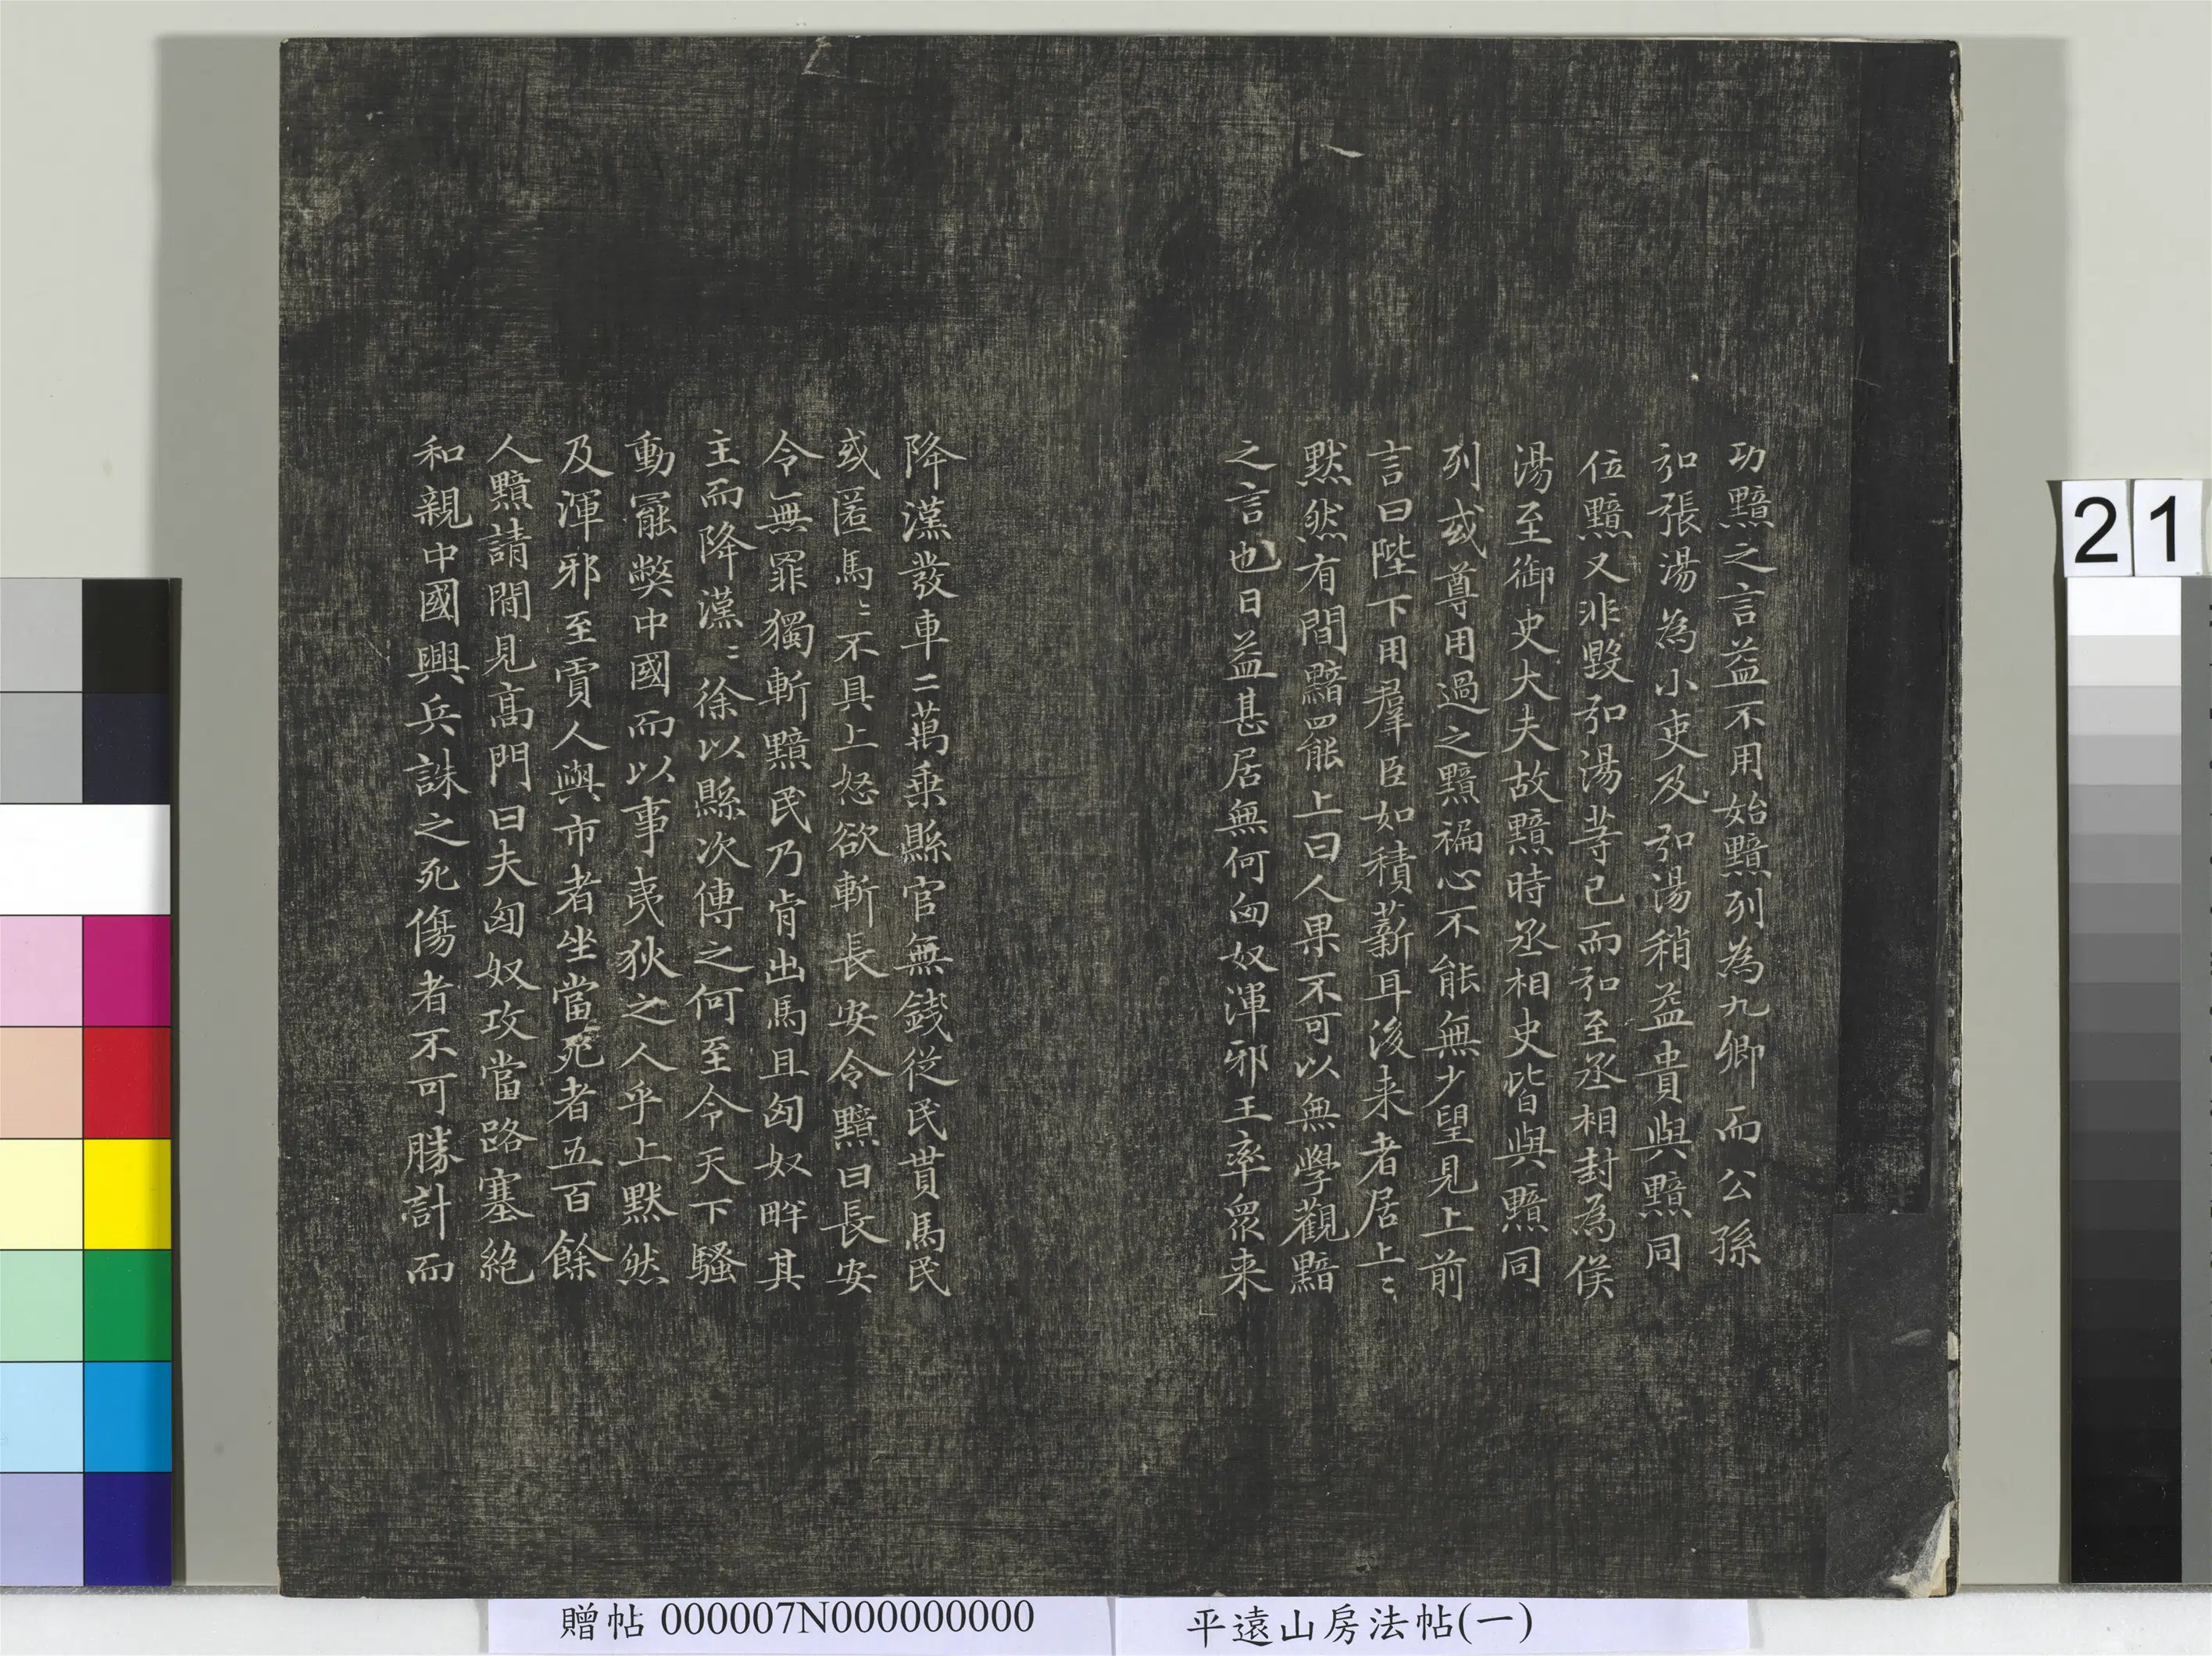 功黯之言益不用始黯列為九卿而公孫
弘張湯為小吏及弘湯稍益貴與黯同
位黯又非毀弘湯等已而弘至丞相封為侯
湯至御史大夫故黯時丞相史皆與黯同
列或尊用過之黯褊心不能無少望見上前
言曰陛下用羣臣如積薪耳後来者居上〻
默然有間黯罷上曰人果不可以無學觀黯
之言也日益甚居無何匈奴渾邪王率眾来
降漢發車二萬乗縣官無錢從民貰馬民
或匿馬〻不具上怒欲斬長安令黯曰長安
令無罪獨斬黯民乃肯出馬且匈奴畔其
主而降漢〻徐以縣次傳之何至令天下騷
動罷弊中國而以事夷狄之人乎上默然
及渾邪至賈人與市者坐當死者五百餘
人黯請間見高門曰夫匈奴攻當路塞絕
和親中國興兵誅之死傷者不可勝計而
21
贈帖 000007N000000000
平遠山房法帖(一)